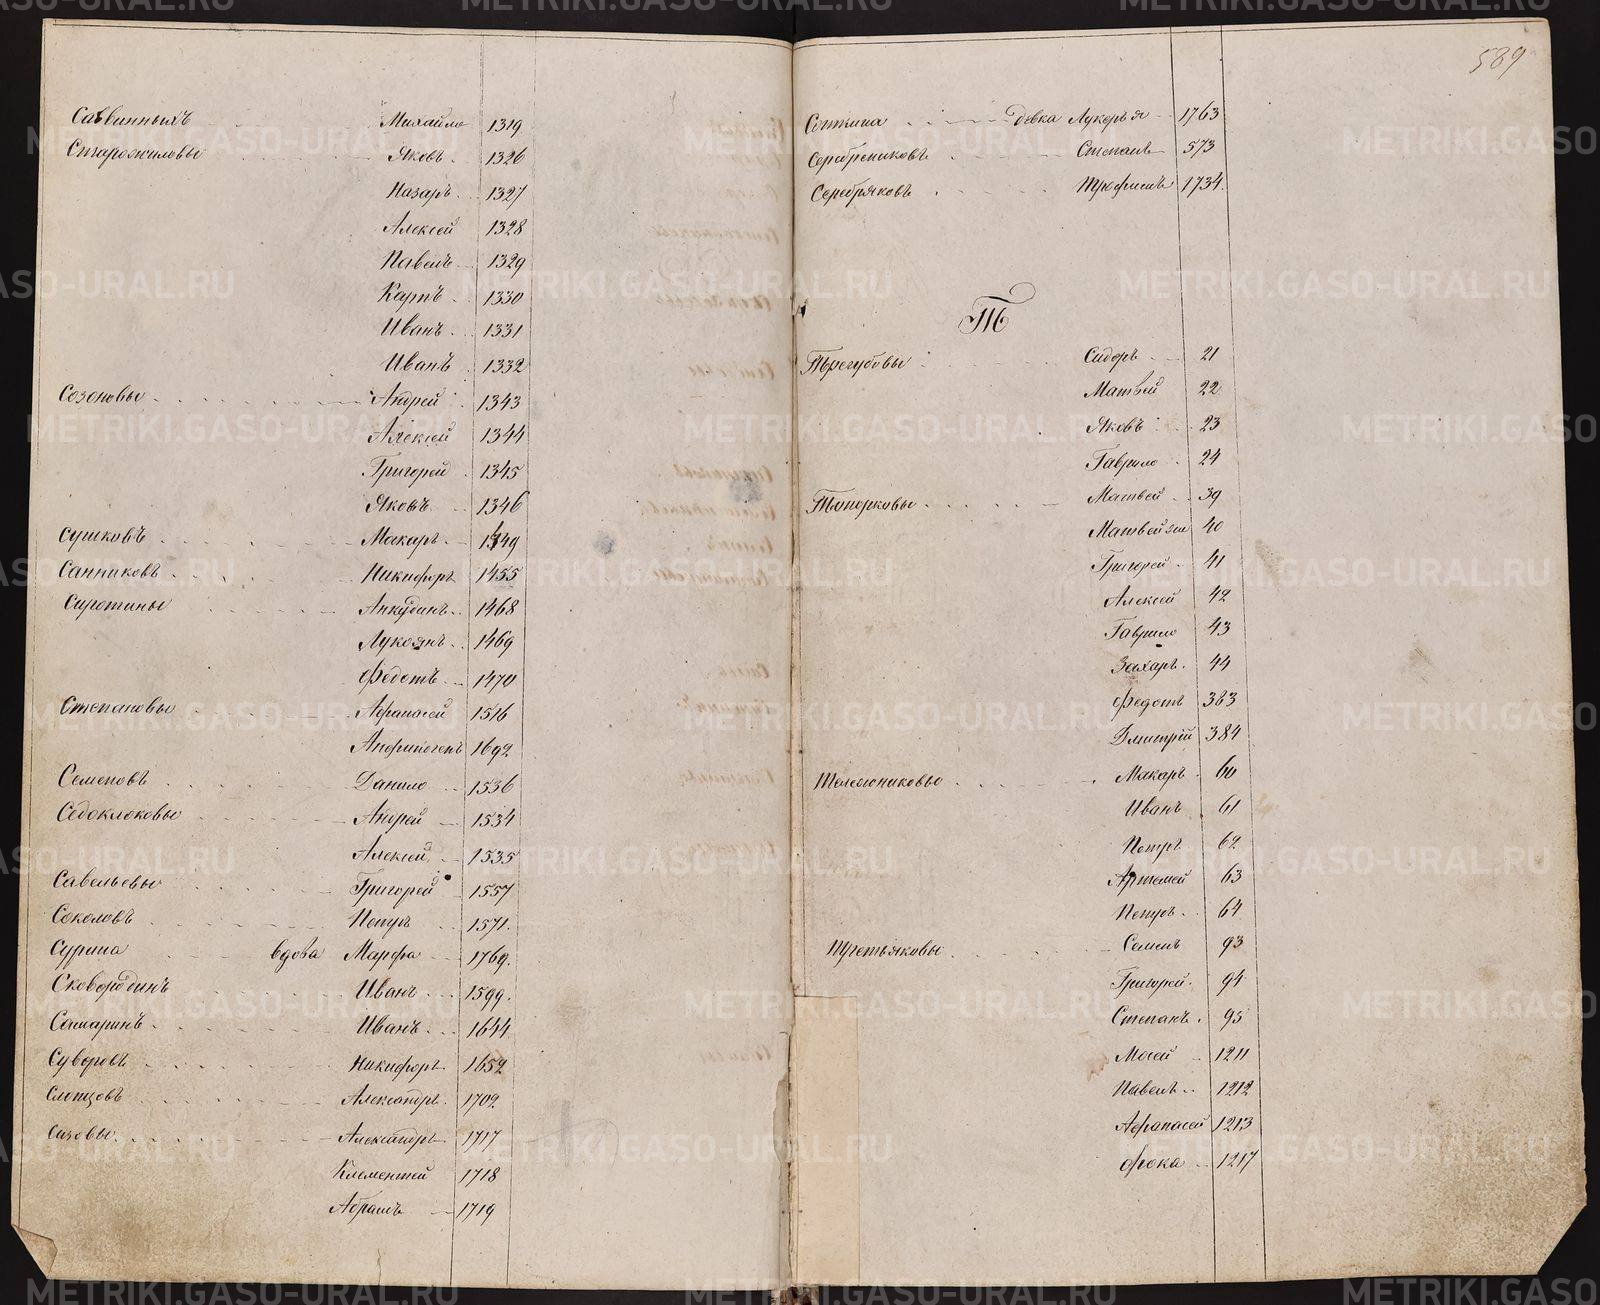 Саввинныхъ Михайло 1319
Старожиловы Яковъ 1326
Назаръ 1327
Алексей 1328
Павелъ 1329
Карпъ 1330
Иванъ 1331
Иванъ 1332
Созоновы Андрей 1343
Алексей 1344
Григорей 1345
Яковъ 1346
Сушковъ Макаръ 1449
Санниковъ Никифоръ 1455
Сиротины Анкудинъ 1468
Лукоянъ 1469
Федотъ 1470
Степановы Афанасей 1516
Анфиногенъ 1692
Семеновъ Данило 1536
Седоклоковы Андрей 1534
Алексей 1535
Савельевы Григорей 1557
Соколовъ Петръ 1571
Сурина вдова Марфа 1769
Сковородинъ Иванъ 1599
Самаринъ Иванъ 1644
Суворовъ Никифоръ 1652
Слепцовъ Александръ 1702
Сизовы Александръ 1717
Климентей 1718
Абрамъ 1719
589
девка Лукерья 1763
Серебрениковъ Степанъ 573
Серебряковъ Трофимъ 1734
Т
Трегубовы Сидоръ 21
Матвей 22
Яковъ 23
Гаврило 24
Топорковы Матвей 39
Матвей же 40
Григорей 41
Алексей 42
Гаврило 43
Захаръ 44
Федотъ 383
Дмитрей 384
Макаръ 60
Иванъ 61
Петръ 62
Артемей 63
Петръ 64
Третьяковы Семенъ 93
Григорей 94
Степанъ 95
Мосей 1211
Павелъ 1212
Афанасей 1213
Фока 1217
METRIKI.GASO-URAL.RU